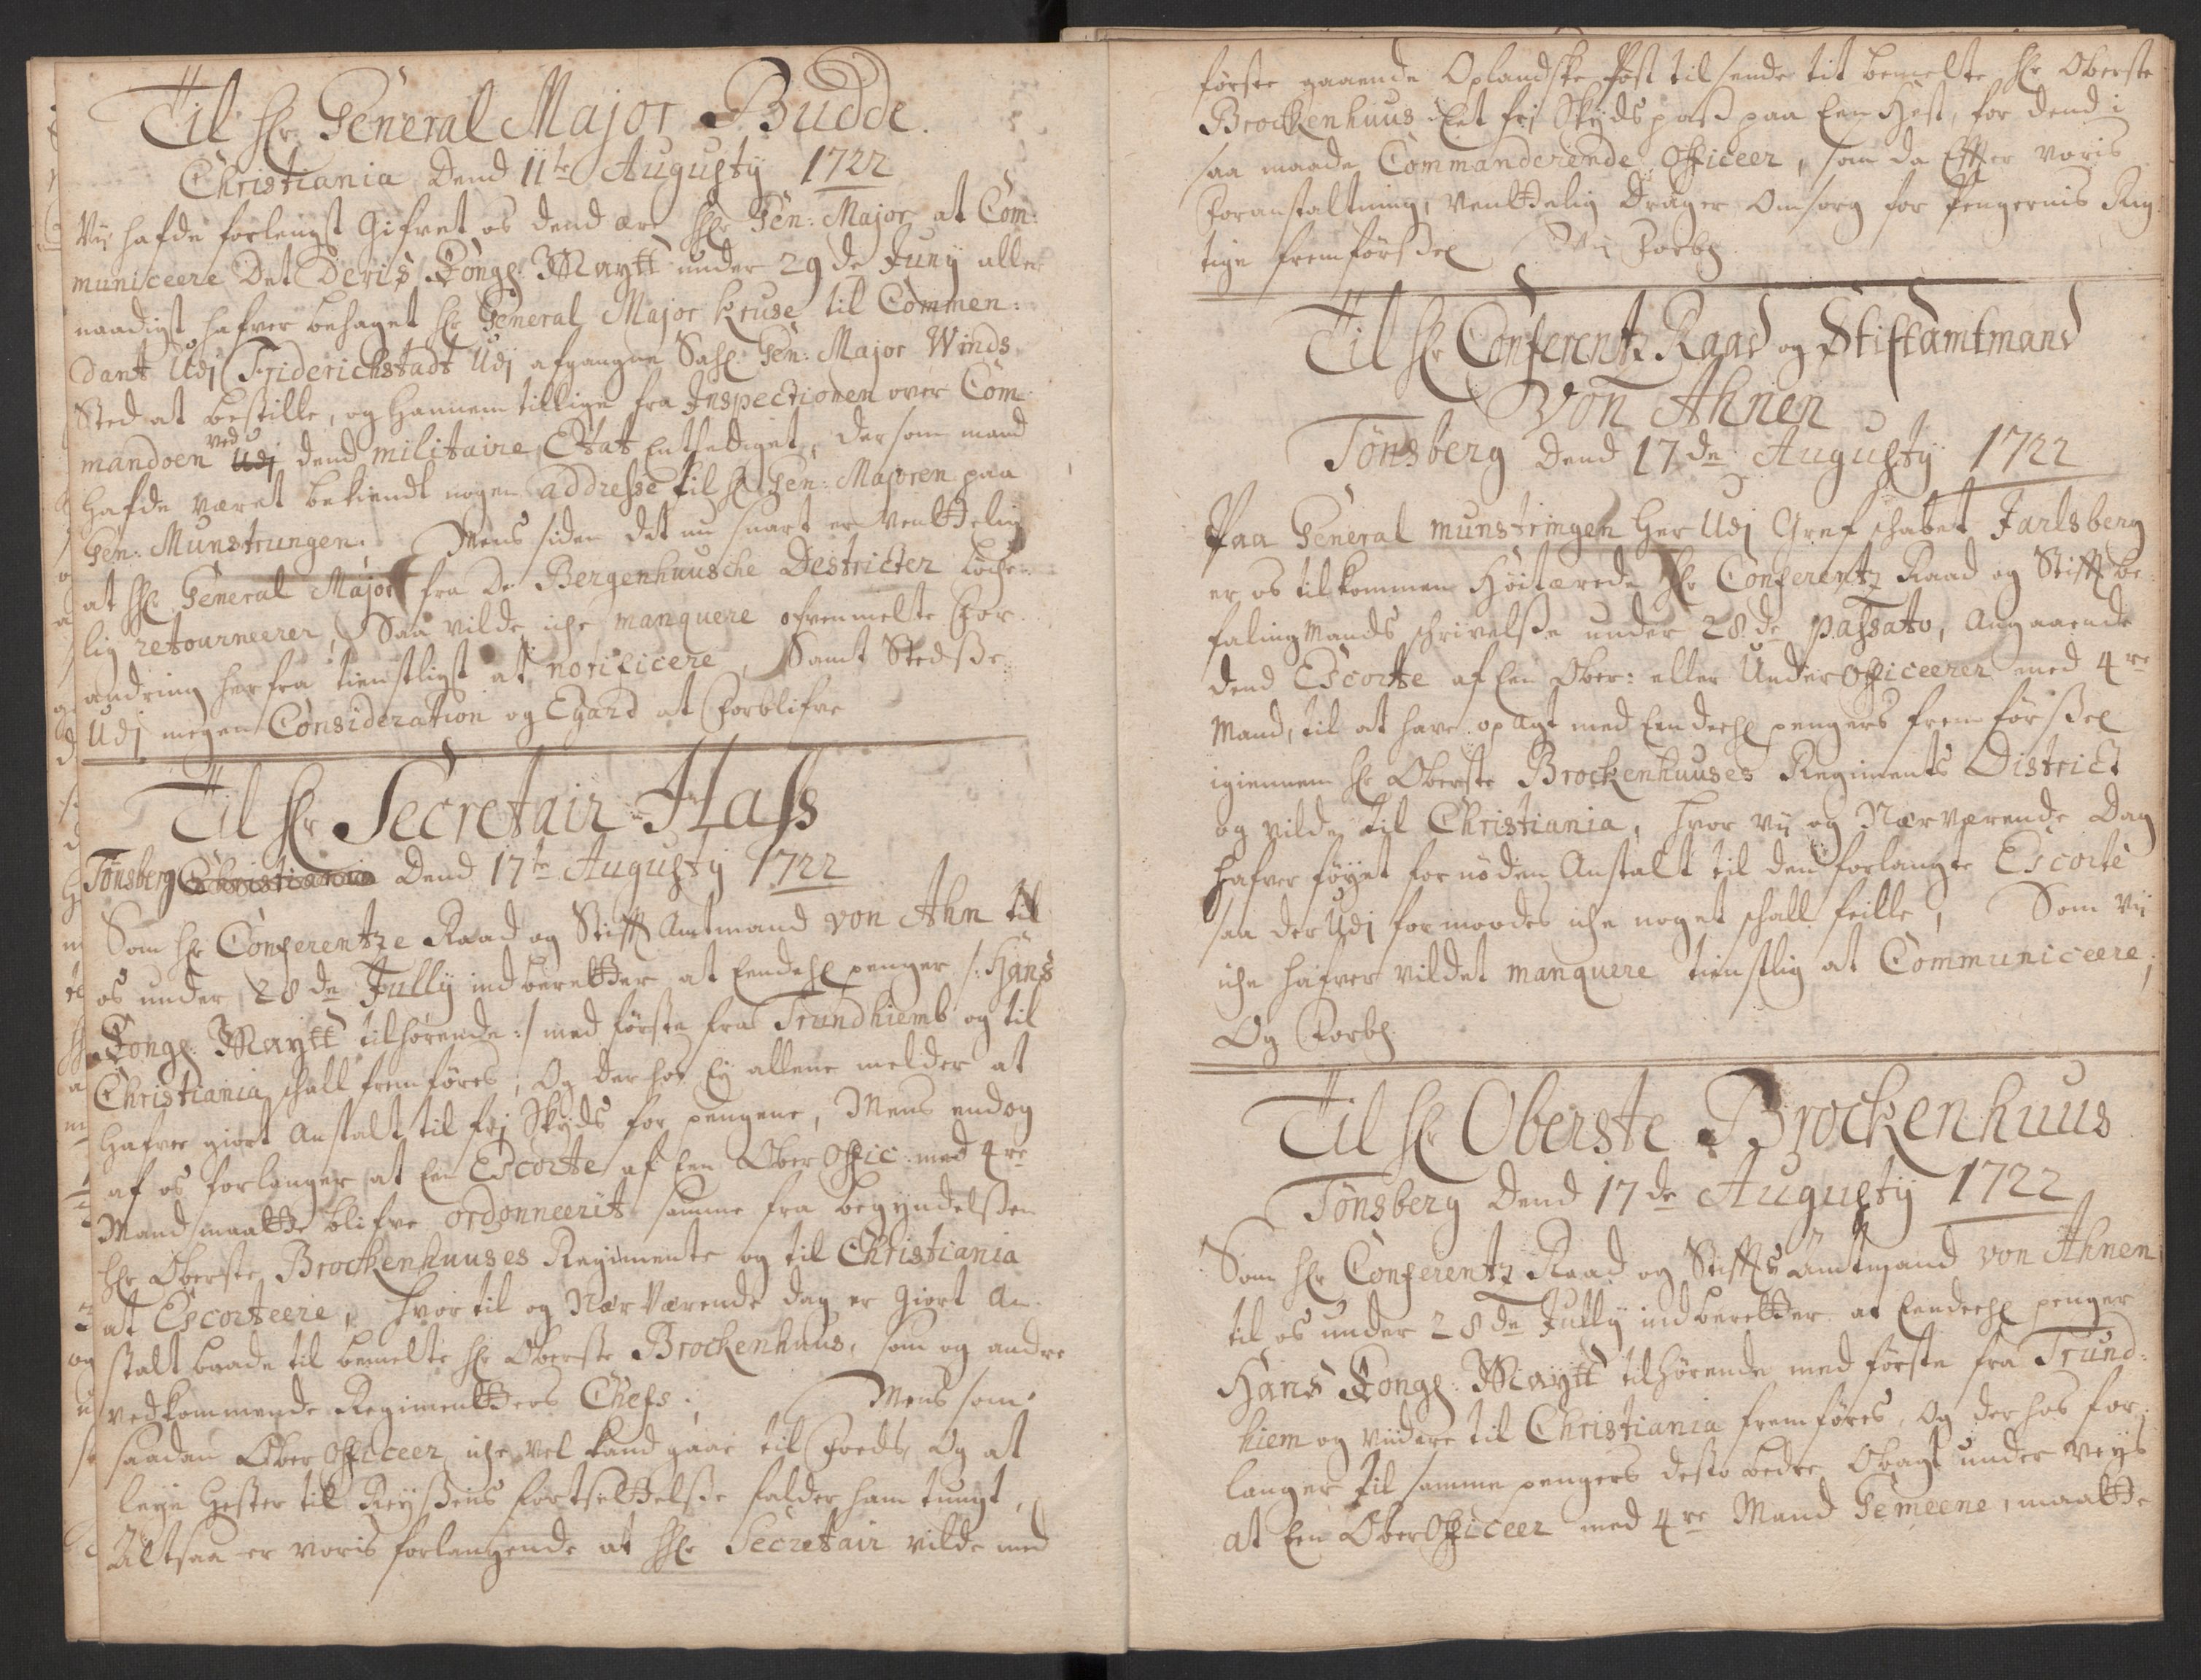 Til hr: General Major Budde.
Christiania Dend 11te Augusty 1722
Vÿ hafde forlengst Gifvet os dend ære Hr Gen: Major at Com:
municeere Det Deris Kongl: Maytt under 29de Juny aller
naadigst hafver behaget Hr General Major Kruse til Commen:
dant Udj Friderichstadt Udj afgangne Sahl: Gen: Major Winds
Sted at bestille, og hannem tillige fra Inspectionen over Com
mandoen ved Udj dend militaire Etat Entlediget, dersom mand
hafde været bekiendt nogen addresse til Hr Gen: Majoren paa
Gen: Munstrungen; Mens siden det nu snart er Venttelig
at Hr General Major fra De Bergenhuusche Destricter Løche
lig retourneerer, Saa vilde iche manquere ofvenmelte For
andring herfra tienstligst at notificere, Samt Stedsse
Udj megen Consideration og Egard at Forblifve
Til Hr Secretair Hass
Tønsberg Christiania Dend 17te Augusty 1722
Som Hr Conferentze Raad og Stift Amtmand von Ahn til
os under 28de Jully indberetter at Eendehl penger /: Hans
Kongl: Maytt tilhørende :/ med første fra Trundhiemb og til
Christiania schall fremføres, Og derhos Ey allene melder at
hafver giort Anstalt til frj Skyds for pengene, Mens endog
af os forlanger at Een Escorte af Een Ober Offic: med 4re
Mand maatte blifve ordonneerit samme fra begyndelssen
Hr Oberste Brockenhuuses Regimente og til Christiania
at Escorteere, hvortil og Nærværende dag er Giort An-
stalt baade til bemelte Hr Oberste Brockenhuus, som og andre
vedkommende Regimentters Chefs; Mens som
saadan Ober Officeer iche vel kand gaae til Foeds og at
leye Hester til Reyssens fortsettelsse falder ham tungt,
Altsaa er voris forlangende at Hr Secretair vilde med
første gaaende Oplandske Post tilsende tit bemelte Hr Oberste
Brockenhuus Eet frj Skydspass paa Een Hest, for dend i
saa maade Commanderende Officeer, som da Efter voris
Foranstaltning Venttelig Drager Omsorg for Pengernis Rig
tige fremførssel Vÿ Forbl
Til Hr Conferentz Raad og Stiftamtmand
von Ahnen
Tønsberg Dend 17de Augusty 1722
Paa General munstringen her Udj Grefschabet Jarlsberg
er os tilkommen Høitærede Hr Conferentz Raad og Stift be:
falingmands schrivelsse under 28de passato, Angaaende
dend Escorte af Een Ober: eller Under Officeerer med 4re
Mand, til at have opagt med Een deehl pengers fremførssel
igiennem Hr Oberste Brockenhuuses Regiments District
og vilde til Christiania, hvor vÿ og Nærværende Dag
hafver føyet fornøden Anstalt til den forlangte Escorte
saa der Udj formoodes iche noget schall feille, Som vÿ
iche hafver vildet manquere tienstlig at Communiceere;
Og Forbl
Til Hr Oberste Brockenhuus
Tønsberg Dend 17de Augusty 1722
Som Hr Conferentz Raad og Stifts Amtmand von Ahnen
til os under 28de Jully indberetter at Eendeehl penger
Hans Kongl: Maytt tilhørende med første fra Trund:
hiem og viidere til Christiania fremføres, Og derhos for:
langer til samme pengers desto bedre Obagt under veys
at Een Ober Officeer med 4re Mand Gemeene, maatte